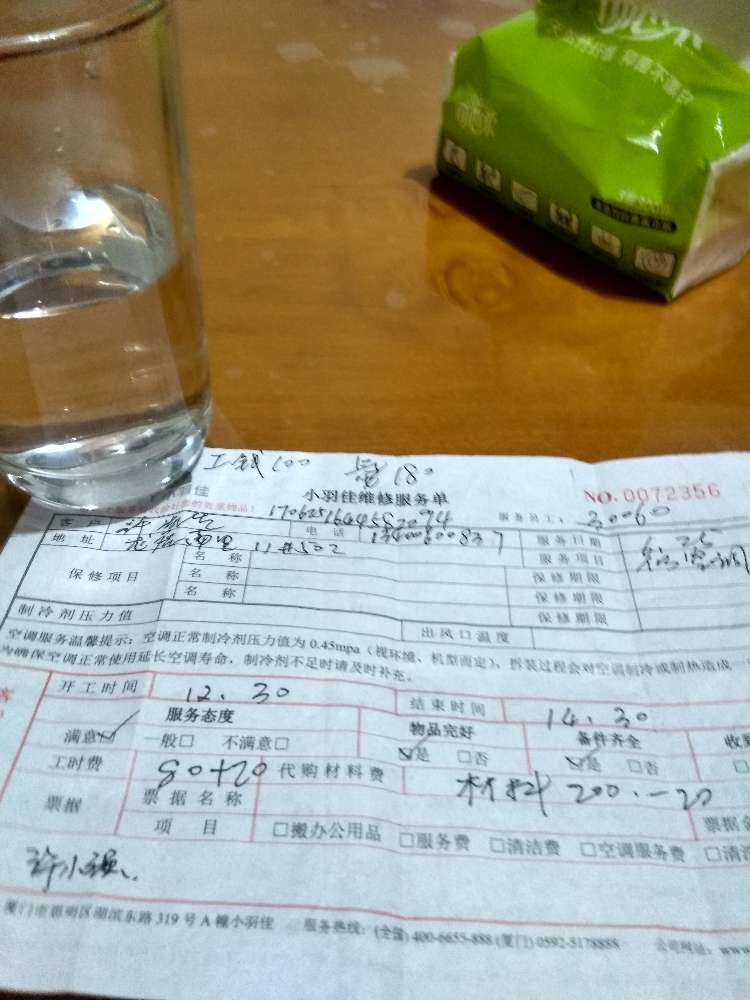 工钱100 180
小羽佳维修服务单 NO.0072356
客户 电话 13400600837 服务员工: 30060
地址 11#502 服务日期
保修项目 名称 服务项目
名称 保修期限
名称 保修期限
保修期限
制冷剂压力值 出风口温度
空调服务温馨提示：空调正常制冷剂压力值为0.45mpa（视环境、机型而定），拆装过程会对空调制冷或制热造成一
为确保空调正常使用延长空调寿命，制冷剂不足时请及时补充。
开工时间 12.30 结束时间 14.30
服务态度 物品完好 备件齐全
满意☑ 一般□ 不满意□ ☑是 □否 ☑是 □否
工时费 80+20 代购材料费 材料 200.-20
票据 票据名称 票据
项目 □搬办公用品 □服务费 □清洁费 □空调服务费
许小强
厦门市思明区湖滨东路319号A幢小羽佳 服务热线：(全国)400-6655-888 (厦门)0592-5178888 公司网站：www